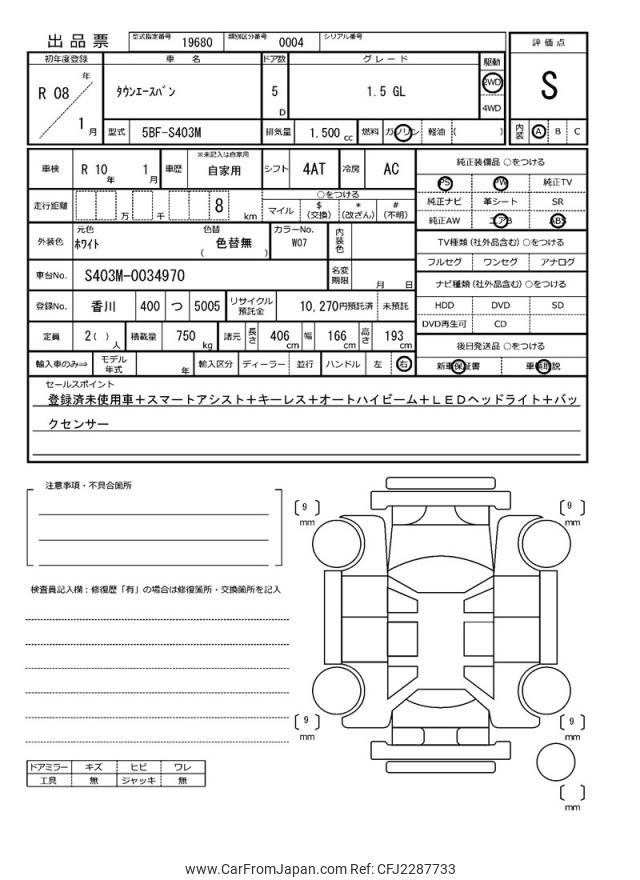 出品票 型式指定番号 19680 類別区分番号 0004 シリアル番号
評価点
S
初年度登録 車名 ドア数 グレード 駆動
R 08 年 1 月
タウンエースバン 5 D 1.5 GL 2WD 4WD
型式 5BF-S403M 排気量 1,500 cc 燃料 ガソリン 軽油 ( )
内装 A B C
車検 R 10 年 1 月 車歴 ※未記入は自家用 自家用 シフト 4AT 冷房 AC
純正装備品 ○をつける
PS PW 純正TV
純正ナビ 革シート SR
純正AW エアB ABS
走行距離 万 千 8 km
○をつける
マイル $ (交換) * (改ざん) # (不明)
外装色 元色 ホワイト 色替 色替無 ( ) カラーNo. W07 内装色
TV種類 (社外品含む) ○をつける
フルセグ ワンセグ アナログ
車台No. S403M-0034970 名変期限 月 日
ナビ種類 (社外品含む) ○をつける
HDD DVD SD
DVD再生可 CD
登録No. 香川 400 つ 5005 リサイクル預託金 10,270円預託済 未預託
定員 2( ) 人 積載量 750 kg 諸元 長さ 406 cm 幅 166 cm 高さ 193 cm
後日発送品 ○をつける
新車保証書 車輌取説
輸入車のみ⇒ モデル年式 年 輸入区分 ディーラー 並行 ハンドル 左 右
セールスポイント
登録済未使用車+スマートアシスト+キーレス+オートハイビーム+LEDヘッドライト+バックセンサー
注意事項・不具合箇所
検査員記入欄:修復歴「有」の場合は修復箇所・交換箇所を記入
[ 9 ] mm
[ 9 ] mm
[ 9 ] mm
[ 9 ] mm
[ ] mm
ドアミラー キズ ヒビ ワレ
工具 無 ジャッキ 無
www.CarFromJapan.com Ref: CFJ2287733